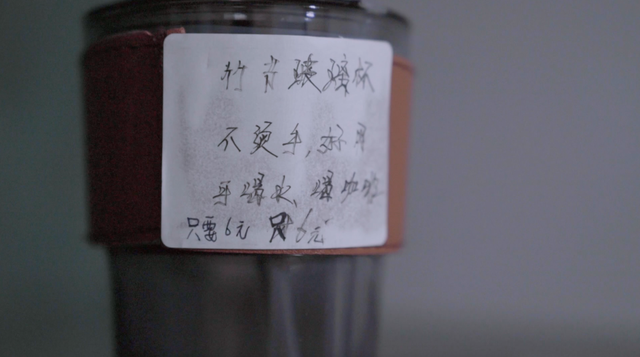 竹 玻璃杯
不烫手,好用
喝水、喝咖啡
只要6元 只6元